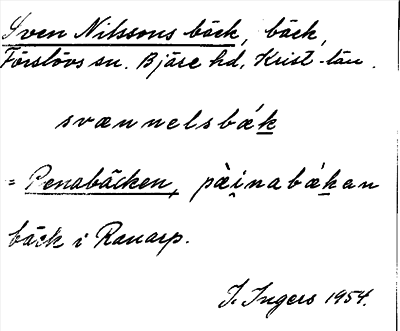 Sven Nilssons bäck, bäck,
Förslövs sn. Bjäre hd, Krist-län.
svænnelsbæ̀k
= Penabäcken, pæ̀i̯nabǽkan
bäck i Ranarp.
I. Ingers 1954.